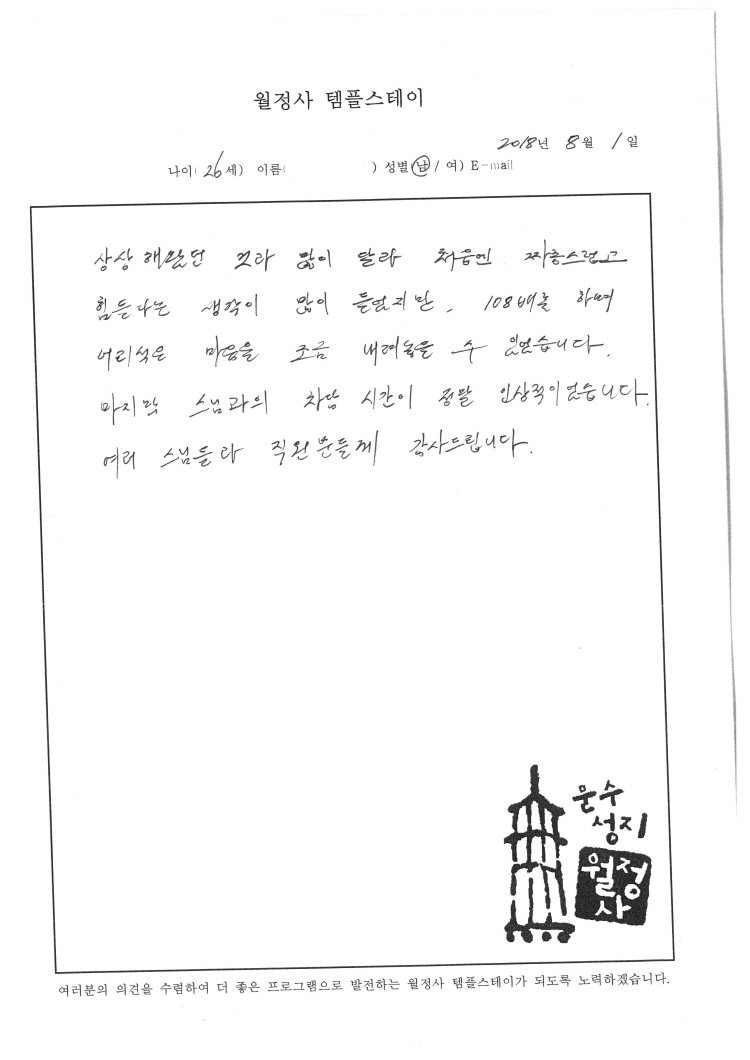 월정사 템플스테이
2018년 8월 1일
나이( 26세) 이름( ) 성별(남 / 여) E-mail
상상해왔던 것과 많이 달라 처음엔 짜증스럽고
힘든다는 생각이 많이 들었지만, 108배를 하며
어리석은 마음을 조금 내려놓을 수 있었습니다.
마지막 스님과의 차담 시간이 정말 인상적이었습니다.
여러 스님들과 직원분들께 감사드립니다.
문수
성지
월정
사
여러분의 의견을 수렴하여 더 좋은 프로그램으로 발전하는 월정사 템플스테이가 되도록 노력하겠습니다.